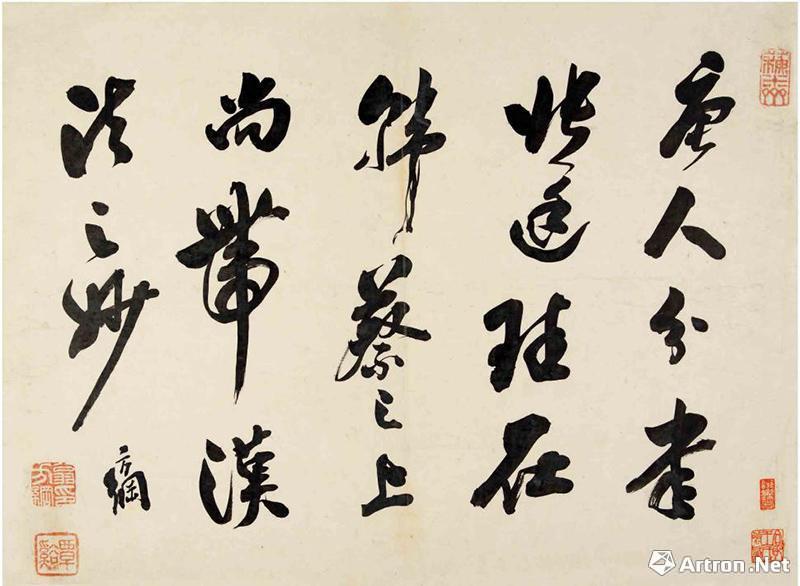 唐人分書
張廷珪在
韓蔡之上
尚帶漢
法之妙
方綱
覃谿
Artron.Net